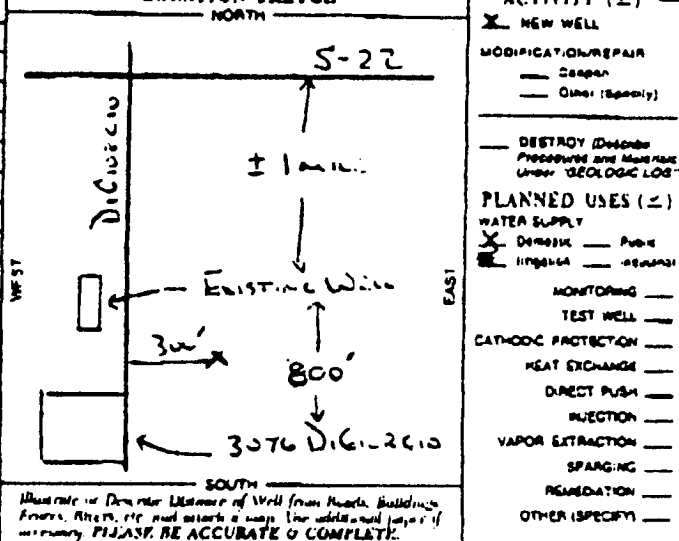 NORTH
S-22
± 1 mile
WEST
EAST
EXISTING WELL
300'
X
800'
3076
SOUTH
Illustrate or Describe Distance of Well from Roads, Buildings,
Fences, Rivers, etc. and attach a map. Use additional paper if
necessary. PLEASE BE ACCURATE & COMPLETE.
ACTIVITY (∠)
X NEW WELL
MODIFICATION/REPAIR
___ Deepen
___ Other (Specify)
___ DESTROY (Describe
Procedures and Materials
Under "GEOLOGIC LOG")
PLANNED USES (∠)
WATER SUPPLY
X Domestic ___ Public
Irrigation ___ Industrial
MONITORING ___
TEST WELL ___
CATHODIC PROTECTION ___
HEAT EXCHANGE ___
DIRECT PUSH ___
INJECTION ___
VAPOR EXTRACTION ___
SPARGING ___
REMEDIATION ___
OTHER (SPECIFY) ___